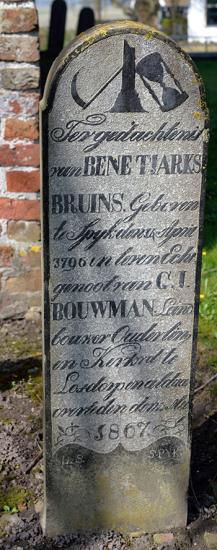 Ter gedachtenis
van BENE TJARKS
BRUINS. Geboren
te Spyk den 15 April
1796 en leven Echt
genoot van C. J.
BOUWMAN Land
bouwer Ouderling
en Kerkvt te
Losdorp en aldaar
overleden den
1867